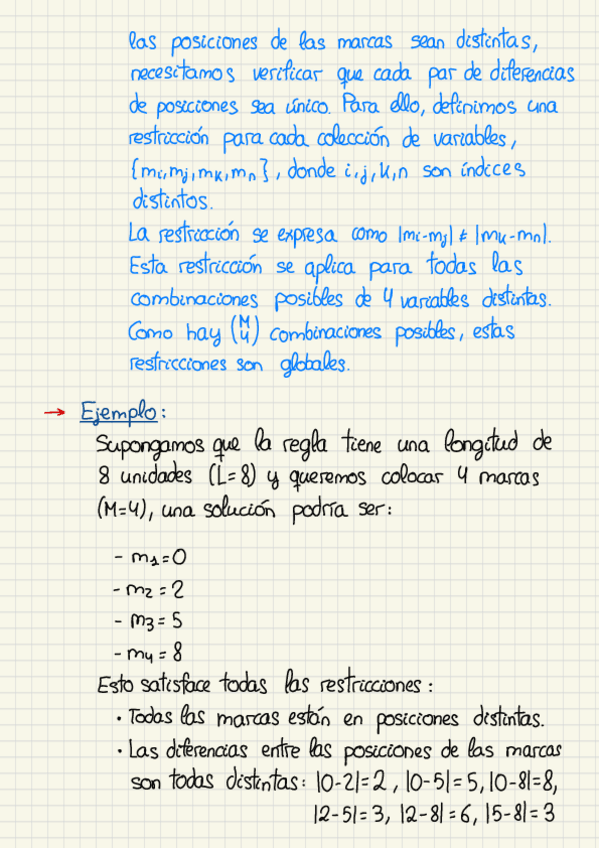 las posiciones de las marcas sean distintas,
necesitamos verificar que cada par de diferencias
de posiciones sea único. Para ello, definimos una
restricción para cada colección de variables,
{mi, mj, mk, mn}, donde i, j, k, n son índices
distintos.
La restricción se expresa como |mi-mj| ≠ |mk-mn|.
Esta restricción se aplica para todas las
combinaciones posibles de 4 variables distintas.
Como hay (M 4) combinaciones posibles, estas
restricciones son globales.
→ Ejemplo:
Supongamos que la regla tiene una longitud de
8 unidades (L=8) y queremos colocar 4 marcas
(M=4), una solución podría ser:
- m1=0
- m2 = 2
- m3 = 5
- m4 = 8
Esto satisface todas las restricciones:
· Todas las marcas están en posiciones distintas.
· Las diferencias entre las posiciones de las marcas
son todas distintas: |0-2|=2, |0-5|=5, |0-8|=8,
|2-5|=3, |2-8|=6, |5-8|=3